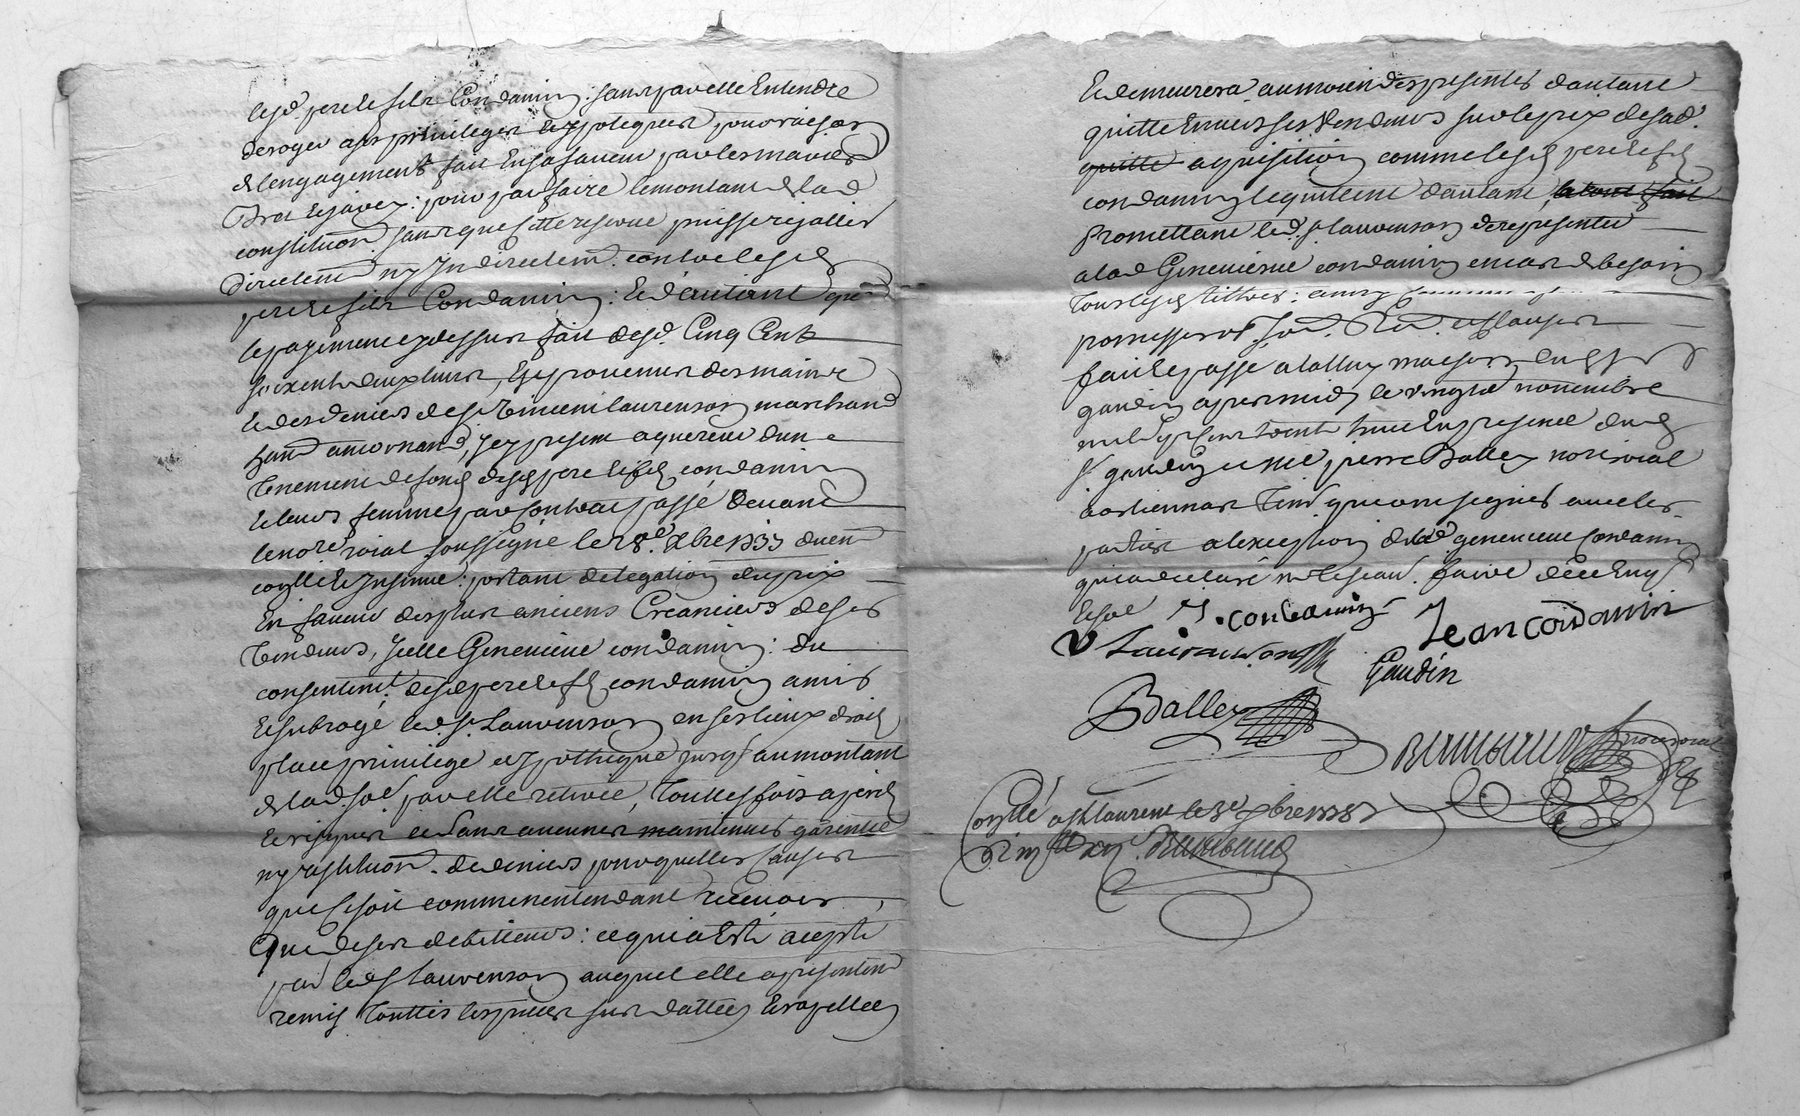 lesd. pere et fils Condamin : sans par elle Entendre
deroger a ses privileges et ypoteques pour raison
de lengagement fait En sa faveur par les maries
Brat : pour parfaire le montant de lad.
constitution. sans que cette reserve puisse rejallir
Directem. ny Indirectem. contre lesd.
pere et fils Condamin : Et d'autant que
le payement cy dessus fait desd. Cinq Cents
soixente deux livres, Est provenu des mains
et des deniers de sr. Vincent laurenson marchand
hant. a , Icy present aquereur dun
tenement de fond desd. pere et fils condamin
et leurs femmes par Contrat passé devant
le nore. roial soussigné le 28e. 8bre 1733 duem.
conllé et Insinué : portant delegation du prix
En faveur des plus anciens Creanciers de ses
vendeurs, Icelle Genevieve condamin : du
consentemt. desd. pere et fils condamin a mis
et subrogé led. sr. Laurenson en ses lieux droits
place privilege et ypotheque jusq. au montant
de lad. so. par elle retirée, touttes fois a ses perils
et risques et sans aucune maintenue garentie
ny restitution de deniers pour quelles causes
que ce soit comme nentendant recevoir
Que de ses debiteurs : ce qui a Esté accepté
par led. sr. Laurenson auquel elle a presentem.
remis touttes les pieces sus dattées Et rapellées
Et demeurera au moien des presentes dautant
quitte Envers ses vendeurs sur le prix de sad.
quitte aquisition comme lesd. pere et fils
condamin le quittent dautant
Promettant led. sr. laurenson de representer
a lad. Genevieve condamin en cas de besoin
tous lesd. tittres : ainsy
promesses obl. so. Ren. et clauses
fait et passé a maison dud. sr.
gaudin apres midy le vingt novembre
mil sept cent trente huit En presence dud.
sr. gaudin et me pierre Balley nore roial
tem. qui ont signés avec les
parties a lexception de lad. genevieve condamin
qui a declaré ne le scavoir faire de ce Enq.
Et so.
J. condamin Jean condamin
V Laurenson
Gaudin
Balley
nore roial
Conllé a st laurent le 3e xbre 1738